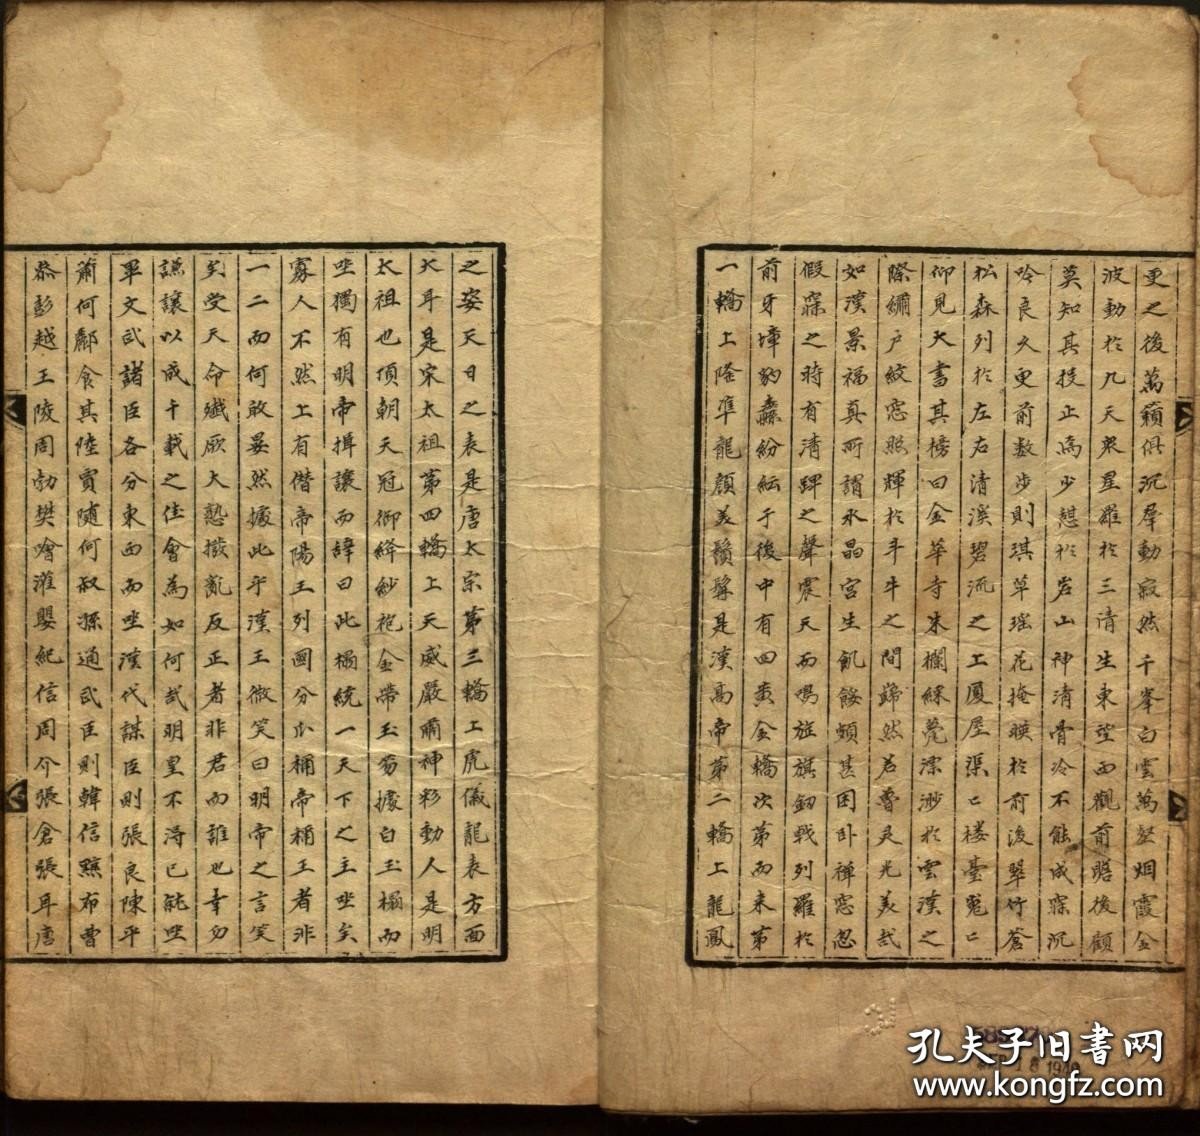 更之後萬籟俱沉羣動寂然千峯白雲萬壑烟霞金
波動於九天衆星羅於三清生東望西觀前瞻後顧
莫知其技止高少憇於岩山神清骨冷不能成寐沉
吟良久更前数步則琪草瑶花掩暎於前後翠竹蒼
松森列於左右清溪碧流之上厦屋渠〻楼臺
仰見大書其榜曰金華寺朱欄綵甍漂渺於雲漢之
際繡户紋窓照輝於斗牛之間巋然若魯灵光美哉
如漢景福真所謂水晶宮生飢餒頗甚困卧禅窓忽
假寐之時有清蹕之聲震天而鳴旌旗釰戟列羅於
前牙幢豹纛紛紜于後中有四黄金轎次第而来第
一轎上隆準龍顔美鬚髯是漢高帝第二轎上龍鳳
之姿天日之表是唐太宗第三轎上虎儀龍表方面
大耳是宋太祖第四轎上天威嚴肅神彩動人是明
太祖也頂朝天冠御絳紗袍金帶玉笏據白玉榻而
坐獨有明帝揖讓而諱曰此榻統一天下之主坐矣
寡人不然上有僭帝陽王列國分爪稱帝稱王者非
一二而何敢晏然據此乎漢王微笑曰明帝之言笑
矣受天命殲厥大憝撥亂反正者非君而誰也幸勿
謙讓以成千載之佳會為如何哉明皇不淂已能坐
軍文武諸臣各分東西而坐漢代謀臣則張良陳平
蕭何酈食其陸賈隨何叔孫通武臣則韓信黥布曹
叅彭越王陵周勃樊噲灌嬰紀信周介張倉張耳唐
孔夫子旧書网
www.kongfz.com